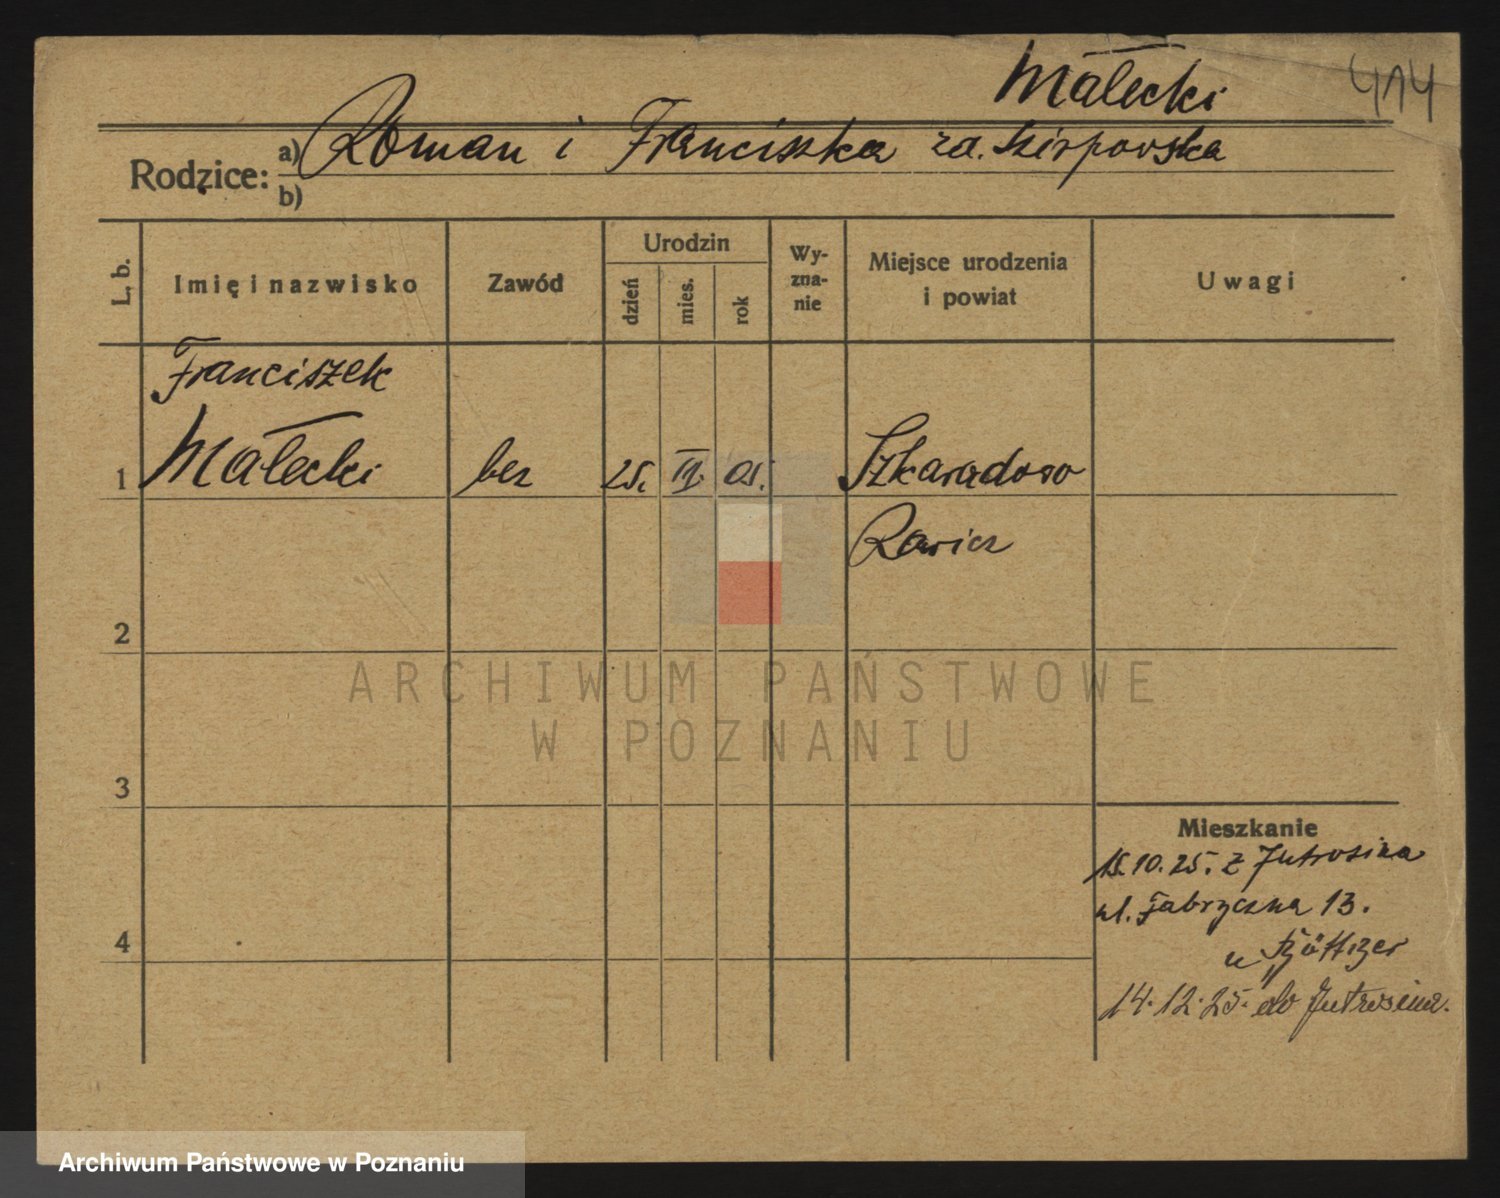 Małecki 414
Rodzice: a) Roman i Franciszka
b)
L. b. Imię i nazwisko Zawód Urodzin dzień mies. rok Wy-zna-nie Miejsce urodzenia i powiat Uwagi
Franciszek
1 Małecki bez 25. 05. Szkaradowo
Rawicz
2
ARCHIWUM PAŃSTWOWE
W POZNANIU
3
Mieszkanie
15.10.25. z Jutrosina
ul. Fabryczna 13.
4
u
14.12.25. do Jutrosina.
Archiwum Państwowe w Poznaniu